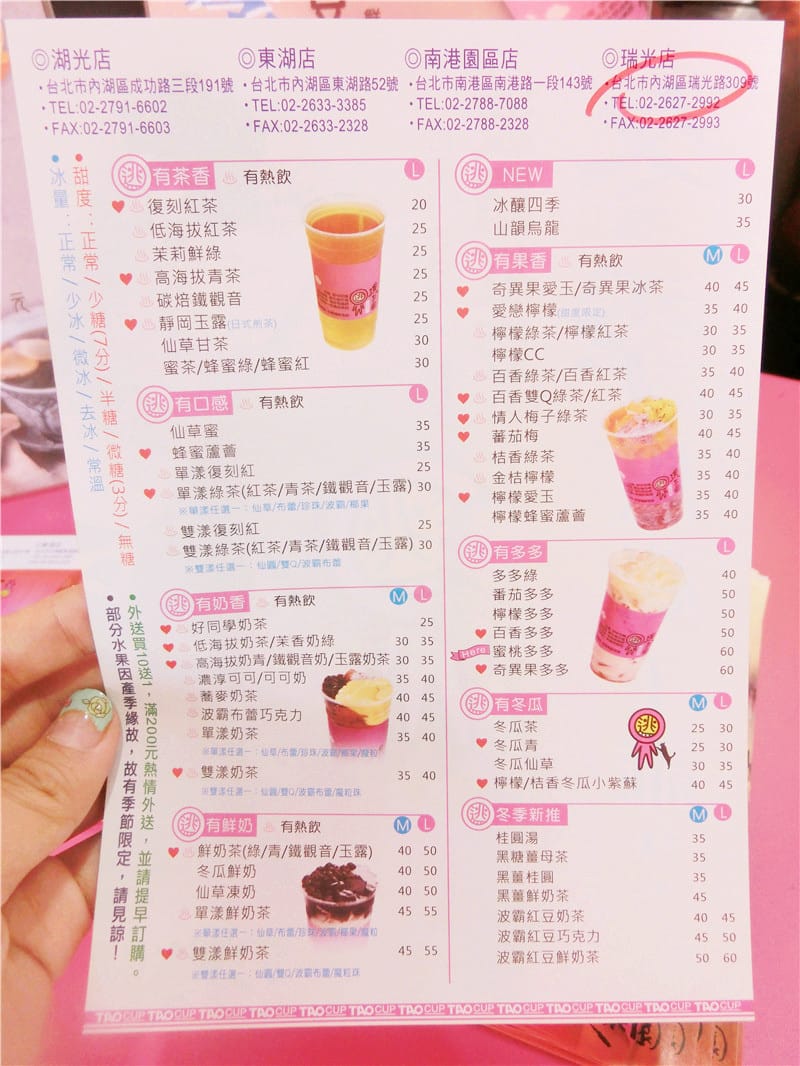 ◎湖光店
・台北市內湖區成功路三段191號
・TEL:02-2791-6602
・FAX:02-2791-6603
◎東湖店
・台北市內湖區東湖路52號
・TEL:02-2633-3385
・FAX:02-2633-2328
◎南港園區店
・台北市南港區南港路一段143號
・TEL:02-2788-7088
・FAX:02-2788-2328
◎瑞光店
・台北市內湖區瑞光路309號
・TEL:02-2627-2992
・FAX:02-2627-2993
●甜度：正常/少糖(7分)/半糖/微糖(3分)/無糖
●冰量：正常/少冰/微冰/去冰/常溫
●外送買10送1，滿200元熱情外送，並請提早訂購。
●部分水果因產季緣故，故有季節限定，請見諒！
逃 有茶香 有熱飲 L
復刻紅茶 20
低海拔紅茶 25
茉莉鮮綠 25
高海拔青茶 25
碳焙鐵觀音 25
靜岡玉露(日式煎茶) 25
仙草甘茶 30
蜜茶/蜂蜜綠/蜂蜜紅 30
逃 有口感 有熱飲 L
仙草蜜 35
蜂蜜蘆薈 35
單漾復刻紅 25
單漾綠茶(紅茶/青茶/鐵觀音/玉露) 30
※單漾任選一：仙草/布蕾/珍珠/波霸/椰果
雙漾復刻紅 25
雙漾綠茶(紅茶/青茶/鐵觀音/玉露) 30
※雙漾任選一：仙圓/雙Q/波霸布蕾
逃 有奶香 有熱飲 M L
好同學奶茶 25
低海拔奶茶/茉香奶綠 30 35
高海拔奶青/鐵觀音奶/玉露奶茶 30 35
濃淳可可/可可奶 35 40
蕎麥奶茶 40 45
波霸布蕾巧克力 40 45
單漾奶茶 35 40
※單漾任選一：仙草/布蕾/珍珠/波霸/椰果/魔粒
雙漾奶茶 35 40
※雙漾任選一：仙圓/雙Q/波霸布蕾/魔粒珠
逃 有鮮奶 有熱飲 M L
鮮奶茶(綠/青/鐵觀音/玉露) 40 50
冬瓜鮮奶 40 50
仙草凍奶 40 50
單漾鮮奶茶 45 55
※單漾任選一：仙草/布蕾/珍珠/波霸/椰果/魔粒
雙漾鮮奶茶 45 55
※雙漾任選一：仙圓/雙Q/波霸布蕾/魔粒珠
逃 NEW L
冰釀四季 30
山韻烏龍 35
逃 有果香 有熱飲 M L
奇異果愛玉/奇異果冰茶 40 45
愛戀檸檬(甜度限定) 35 40
檸檬綠茶/檸檬紅茶 30 35
檸檬CC 30 35
百香綠茶/百香紅茶 35 40
百香雙Q綠茶/紅茶 40 45
情人梅子綠茶 30 35
蕃茄梅 40 45
桔香綠茶 35 40
金桔檸檬 35 40
檸檬愛玉 35 40
檸檬蜂蜜蘆薈 35 40
逃 有多多 L
多多綠 40
蕃茄多多 50
檸檬多多 50
百香多多 50
Here 蜜桃多多 60
奇異果多多 60
逃 有冬瓜 M L
冬瓜茶 25 30
冬瓜青 25 30
冬瓜仙草 30 35
檸檬/桔香冬瓜小紫蘇 40 45
逃
逃 冬季新推 M L
桂圓湯 35
黑糖薑母茶 35
黑薑桂圓 35
黑薑鮮奶茶 45
波霸紅豆奶茶 40 45
波霸紅豆巧克力 45 50
波霸紅豆鮮奶茶 50 60
TAOCUP TAOCUP TAOCUP TAOCUP TAOCUP TAOCUP TAOCUP TAOCUP TAOCUP TAOCUP TAOCUP TAOCUP TAOCUP